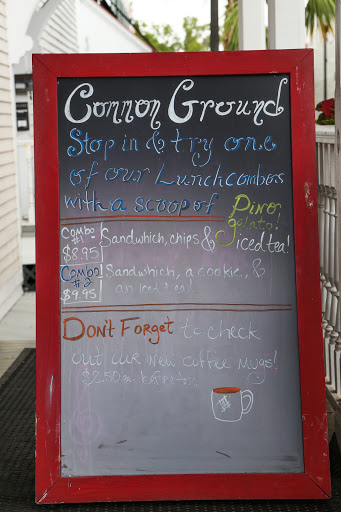 Common Ground
Stop in & try one
of our Lunch combos
with a scoop of Dino's
gelato!
Combo
#1
$8.95
Sandwhich, chips & iced tea!
Combo!
#2
$9.95
Sandwhich, a cookie, &
an iced tea!
Don't Forget to check
out our new coffee mugs!
$2.50